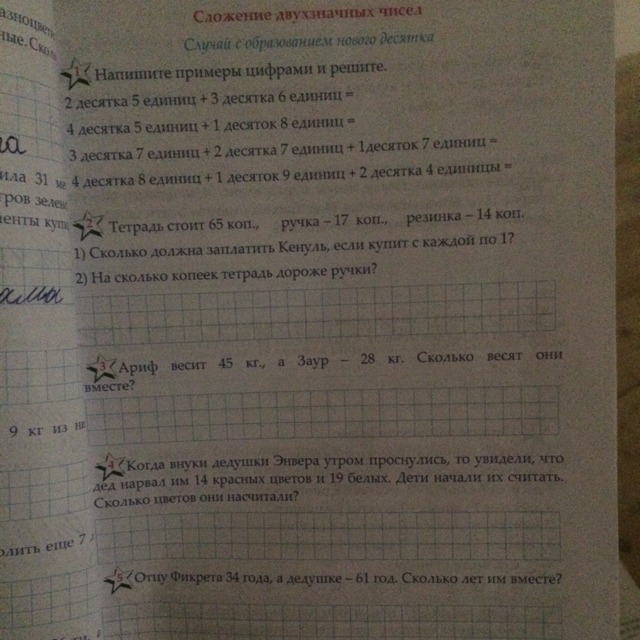 Сложение двухзначных чисел
Случай с образованием нового десятка
1 Напишите примеры цифрами и решите.
2 десятка 5 единиц + 3 десятка 6 единиц =
4 десятка 5 единиц + 1 десяток 8 единиц =
3 десятка 7 единиц + 2 десятка 7 единиц + 1десяток 7 единиц =
4 десятка 8 единиц + 1 десяток 9 единиц + 2 десятка 4 единицы =
2 Тетрадь стоит 65 коп., ручка – 17 коп., резинка – 14 коп.
1) Сколько должна заплатить Кенуль, если купит с каждой по 1?
2) На сколько копеек тетрадь дороже ручки?
3 Ариф весит 45 кг., а Заур – 28 кг. Сколько весят они
вместе?
4 Когда внуки дедушки Энвера утром проснулись, то увидели, что
дед нарвал им 14 красных цветов и 19 белых. Дети начали их считать.
Сколько цветов они насчитали?
5 Отцу Фикрета 34 года, а дедушке – 61 год. Сколько лет им вместе?
ила 31
тров зеле
енты купи
9 кг из
олить еще 7